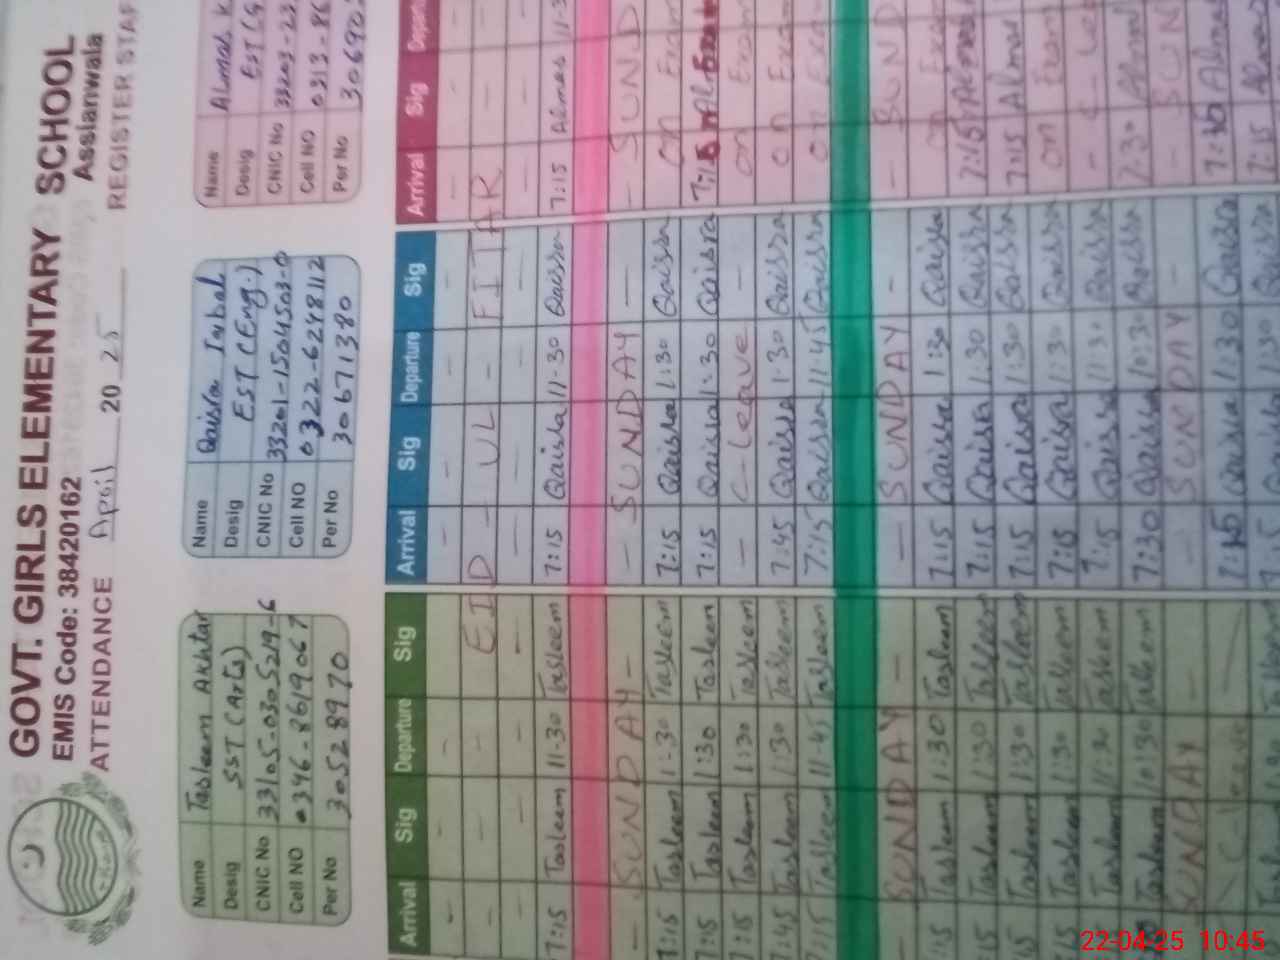 GOVT. GIRLS ELEMENTARY SCHOOL
EMIS Code: 38420162 Asslanwala
ATTENDANCE April 2025 REGISTER STAF
Name Tasleem Akhtar
Desig SST (Arts)
CNIC No 33105-0305219-6
Cell NO 0346-8619067
Per No 30528970
Name Qaisra Iqbal
Desig EST (Eng.)
CNIC No 33201-1504503-0
Cell NO 0322-6248112
Per No 30671380
Name Almas K
Desig EST (
CNIC No 33203-23
Cell NO 0313-86
Per No 30690
Arrival Sig Departure Sig Arrival Sig Departure Sig Arrival Sig Depart
EID - UL - FITAR
7:15 Tasleem 11-30 Tasleem 7:15 Qaisra 11-30 Qaisra 7:15 Almas 11-3
- SUNDAY - - SUNDAY - - SUND
7:15 Tasleem 1:30 Tasleem 7:15 Qaisra 1:30 Qaisra on Exam
7:15 Tasleem 1:30 Tasleem 7:15 Qaisra 1:30 Qaisra 7:15
7:15 Tasleem 1:30 Tasleem - C-leave - on Exam
7:45 Tasleem 1:30 Tasleem 7:45 Qaisra 1-30 Qaisra on Exa
7:15 Tasleem 11-45 Tasleem 7:15 Qaisra 11-45 Qaisra on Exa
- SUNDAY - - SUNDAY - - SUND
:15 Tasleem 1:30 Tasleem 7:15 Qaisra 1:30 Qaisra on Exam
:15 Tasleem 1:30 Tasleem 7:15 Qaisra 1:30 Qaisra 7:15 Almas
:15 Tasleem 1:30 Tasleem 7:15 Qaisra 1:30 Qaisra 7:15 Almas
:15 Tasleem 1:30 Tasleem 7:15 Qaisra 1:30 Qaisra on Exam
:15 Tasleem 11:30 Tasleem 7:15 Qaisra 11:30 Qaisra - C-lea
Tasleem 10:30 Tasleem 7:30 Qaisra 10:30 Qaisra 7:30 Almas
SUNDAY - SUNDAY - - SUN
C-leave 7:15 Qaisra 1:30 Qaisra 7:30 Almas
Tasleem Tasleem 7:15 Qaisra 1:30 Qaisra 7:15 Almas
22-04-25 10:45